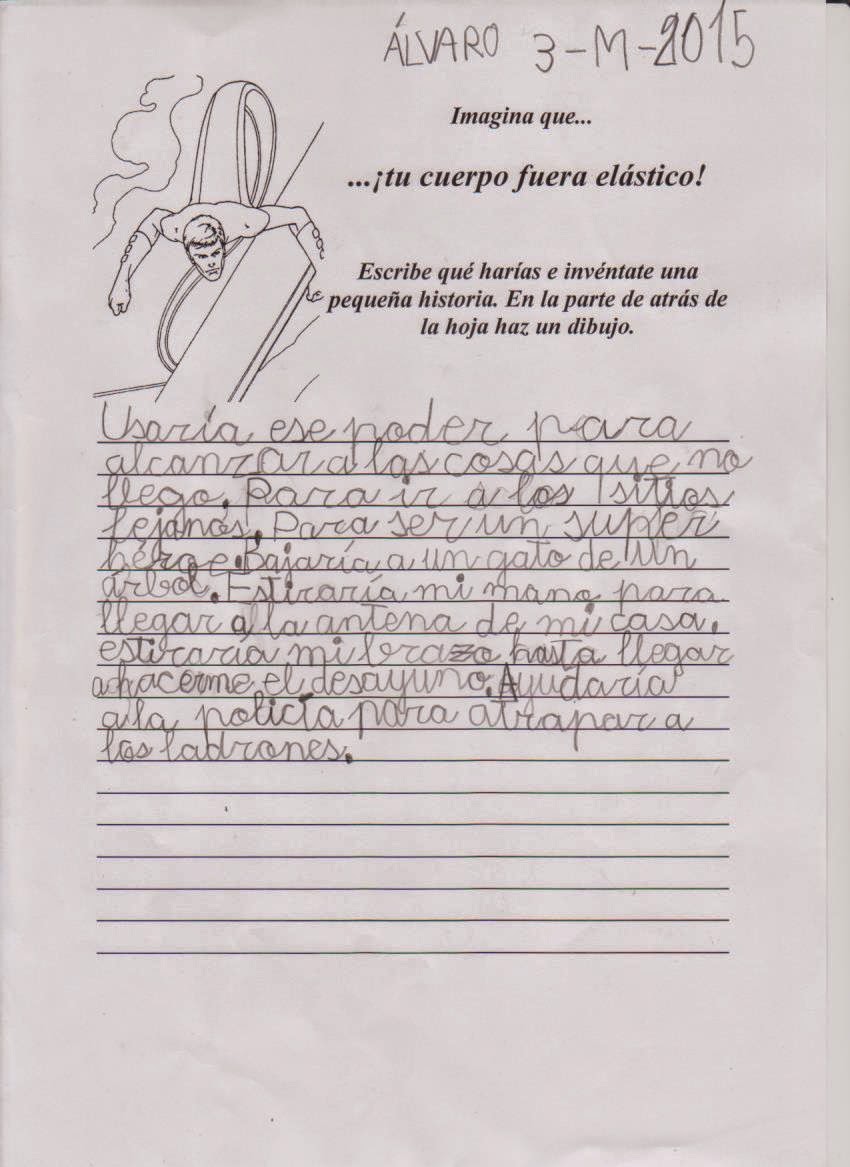 ÁLVARO 3-M-2015
Imagina que...
...¡tu cuerpo fuera elástico!
Escribe qué harías e invéntate una
pequeña historia. En la parte de atrás de
la hoja haz un dibujo.
Usaría ese poder para
alcanzar a las cosas que no
llego. Para ir a los sitios
lejanos. Para ser un super
héroe. Bajaría a un gato de un
árbol. Estiraría mi mano para
llegar a la antena de mi casa.
estiraria mi brazo hasta llegar
a hacerme el desayuno. Ayudaría
a la policía para atrapar a
los ladrones.